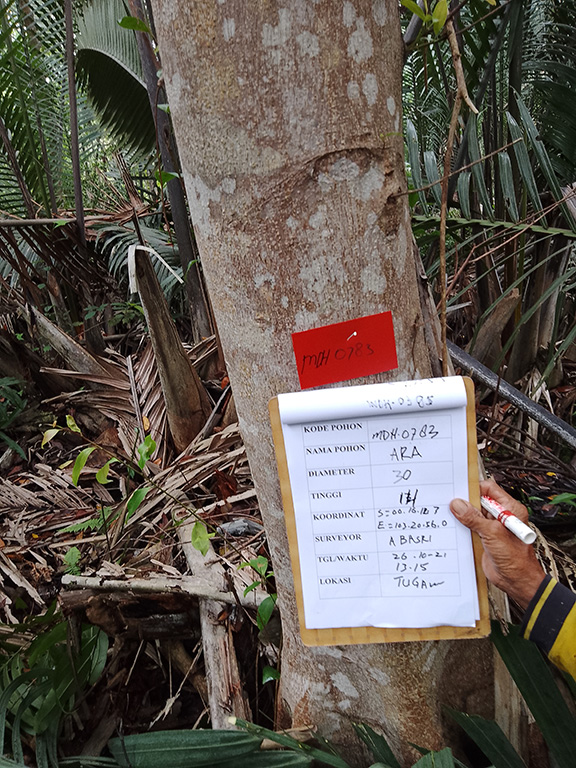 MDH 0783
KODE POHON MDH-0783
NAMA POHON ARA
DIAMETER 30
TINGGI
KOORDINAT S=00.10.18.7
E=103.20.56.0
SURVEYOR A BASRI
TGL/WAKTU 26-10-21
13.15
LOKASI